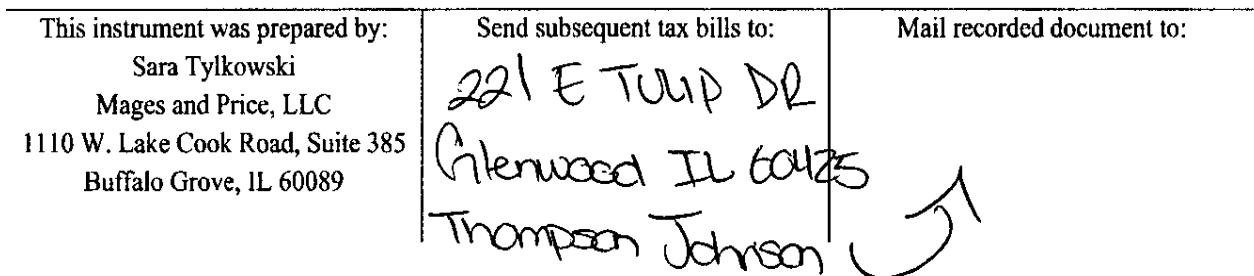 This instrument was prepared by:
Sara Tylkowski
Mages and Price, LLC
1110 W. Lake Cook Road, Suite 385
Buffalo Grove, IL 60089
Send subsequent tax bills to:
221 E TULIP DR
Glenwood IL 60425
Thompson Johnson
Mail recorded document to: